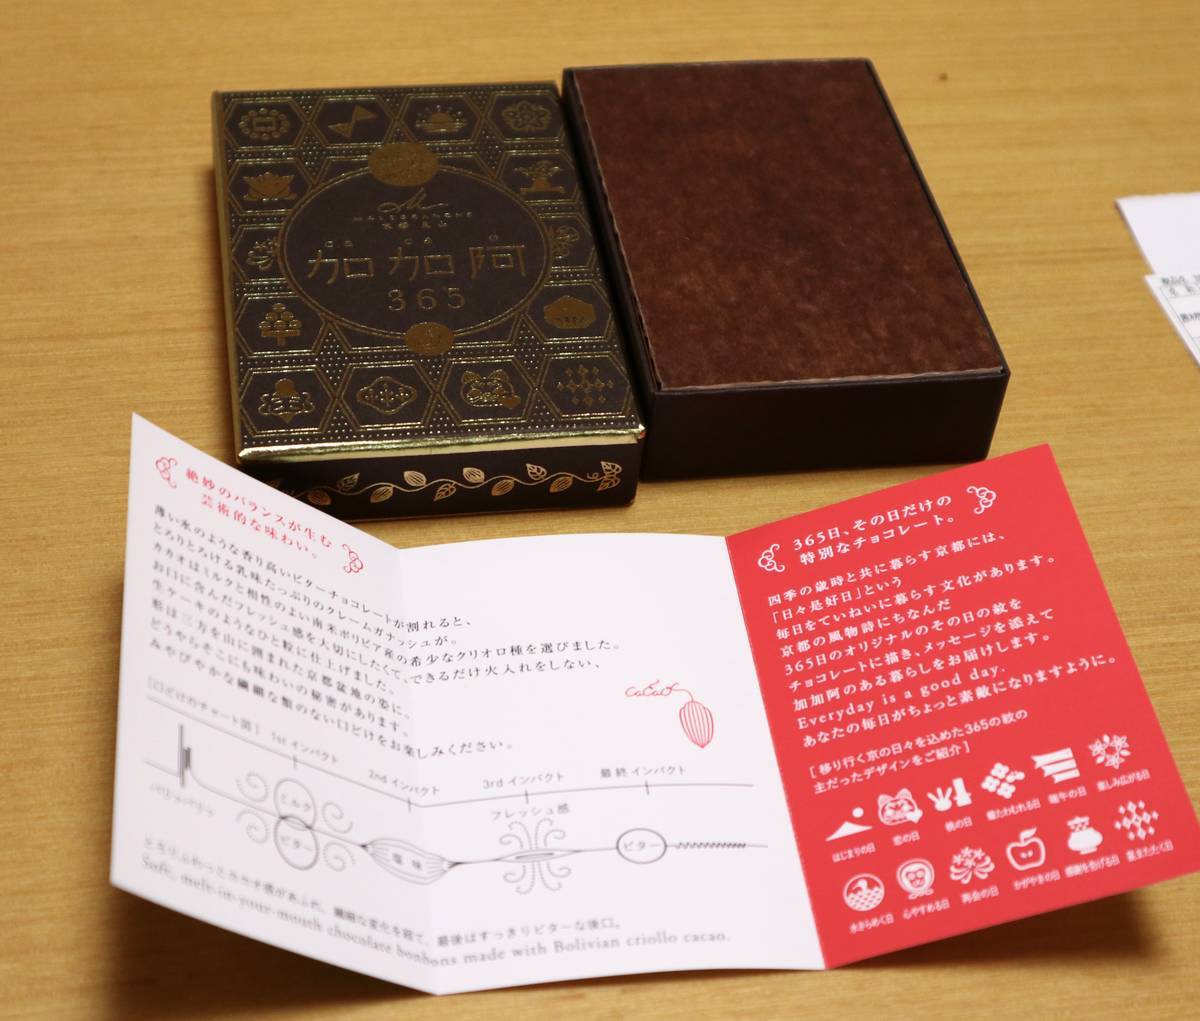 MALEBRANCHE
ca ca o
加加阿
365
絶妙のバランスが生む
芸術的な味わい。
薄い氷のような香り高いビターチョコレートが割れると、
とろりとろける乳味たっぷりのクレームガナッシュが。
カカオはミルクと相性のよい南米ボリビア産の希少なクリオロ種を選びました。
お口に含んだフレッシュ感を大切にしたくて、できるだけ火入れをしない、
生ケーキのようなひと粒に仕上げました。
形は三方を山に囲まれた京都盆地の姿に。
どうやらそこにも味わいの秘密があります。
みやびやかな繊細な類のない口どけをお楽しみください。
cacao
[口どけのチャート図]
1st インパクト
2nd インパクト
3rd インパクト
最終インパクト
パリッパリッ
ミルク
ビター
塩味
フレッシュ感
ビター
とろりふわっとカカオ感があふれ、繊細な変化を経て、最後はすっきりビターな後口。
Soft, melt-in-your-mouth chocolate bonbons made with Bolivian criollo cacao.
365日、その日だけの
特別なチョコレート。
四季の歳時と共に暮らす京都には、
「日々是好日」という
毎日をていねいに暮らす文化があります。
京都の風物詩にちなんだ
365日のオリジナルのその日の紋を
チョコレートに描き、メッセージを添えて
加加阿のある暮らしをお届けします。
Everyday is a good day.
あなたの毎日がちょっと素敵になりますように。
[移り行く京の日々を込めた365の紋の
主だったデザインをご紹介]
はじまりの日
恋の日
桃の日
蝶たわむれる日
端午の日
楽しみ広がる日
水きらめく日
心やすめる日
再会の日
かがやきの日
感謝を告げる日
星またたく日